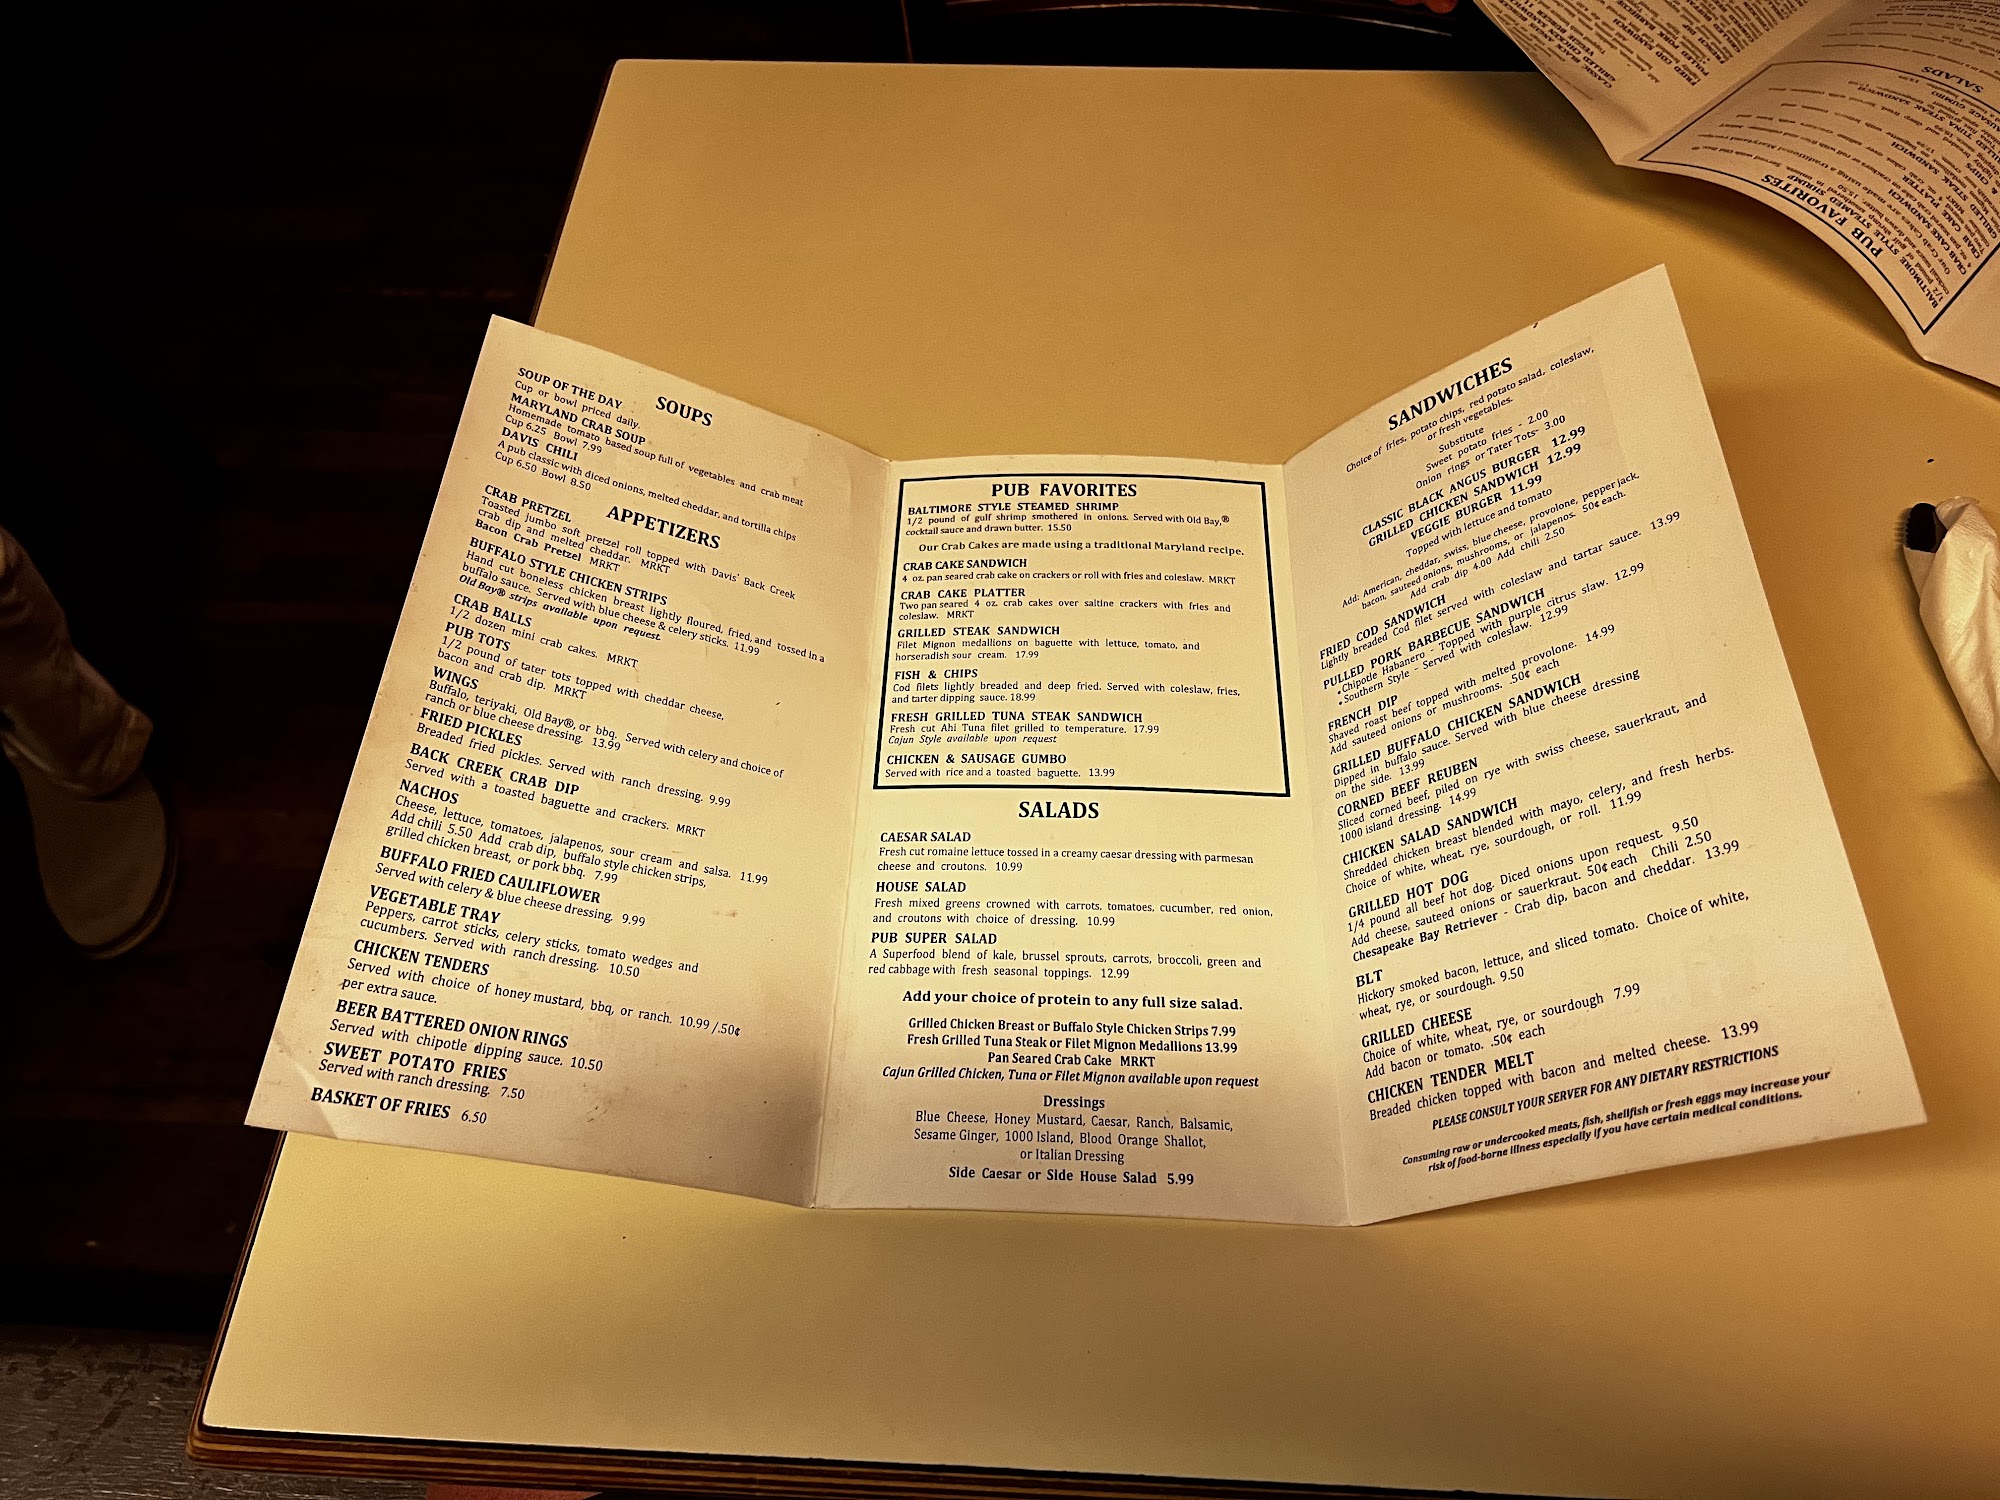 SOUPS
SOUP OF THE DAY
Cup or bowl priced daily.
MARYLAND CRAB SOUP
Homemade tomato based soup full of vegetables and crab meat
Cup 6.25 Bowl 7.99
DAVIS CHILI
A pub classic with diced onions, melted cheddar, and tortilla chips
Cup 6.50 Bowl 8.50
APPETIZERS
CRAB PRETZEL
Toasted jumbo soft pretzel roll topped with Davis' Back Creek
crab dip and melted cheddar. MRKT
Bacon Crab Pretzel MRKT
BUFFALO STYLE CHICKEN STRIPS
Hand cut boneless chicken breast lightly floured, fried, and tossed in a
buffalo sauce. Served with blue cheese & celery sticks. 11.99
Old Bay® strips available upon request.
CRAB BALLS
1/2 dozen mini crab cakes. MRKT
PUB TOTS
1/2 pound of tater tots topped with cheddar cheese,
bacon and crab dip. MRKT
WINGS
Buffalo, teriyaki, Old Bay®, or bbq. Served with celery and choice of
ranch or blue cheese dressing. 13.99
FRIED PICKLES
Breaded fried pickles. Served with ranch dressing. 9.99
BACK CREEK CRAB DIP
Served with a toasted baguette and crackers. MRKT
NACHOS
Cheese, lettuce, tomatoes, jalapenos, sour cream and salsa. 11.99
Add chili 5.50 Add crab dip, buffalo style chicken strips,
grilled chicken breast, or pork bbq. 7.99
BUFFALO FRIED CAULIFLOWER
Served with celery & blue cheese dressing. 9.99
VEGETABLE TRAY
Peppers, carrot sticks, celery sticks, tomato wedges and
cucumbers. Served with ranch dressing. 10.50
CHICKEN TENDERS
Served with choice of honey mustard, bbq, or ranch. 10.99 /.50¢
per extra sauce.
BEER BATTERED ONION RINGS
Served with chipotle dipping sauce. 10.50
SWEET POTATO FRIES
Served with ranch dressing. 7.50
BASKET OF FRIES 6.50
PUB FAVORITES
BALTIMORE STYLE STEAMED SHRIMP
1/2 pound of gulf shrimp smothered in onions. Served with Old Bay,®
cocktail sauce and drawn butter. 15.50
Our Crab Cakes are made using a traditional Maryland recipe.
CRAB CAKE SANDWICH
4 oz. pan seared crab cake on crackers or roll with fries and coleslaw. MRKT
CRAB CAKE PLATTER
Two pan seared 4 oz. crab cakes over saltine crackers with fries and
coleslaw. MRKT
GRILLED STEAK SANDWICH
Filet Mignon medallions on baguette with lettuce, tomato, and
horseradish sour cream. 17.99
FISH & CHIPS
Cod filets lightly breaded and deep fried. Served with coleslaw, fries,
and tarter dipping sauce. 18.99
FRESH GRILLED TUNA STEAK SANDWICH
Fresh cut Ahi Tuna filet grilled to temperature. 17.99
Cajun Style available upon request
CHICKEN & SAUSAGE GUMBO
Served with rice and a toasted baguette. 13.99
SALADS
CAESAR SALAD
Fresh cut romaine lettuce tossed in a creamy caesar dressing with parmesan
cheese and croutons. 10.99
HOUSE SALAD
Fresh mixed greens crowned with carrots, tomatoes, cucumber, red onion,
and croutons with choice of dressing. 10.99
PUB SUPER SALAD
A Superfood blend of kale, brussel sprouts, carrots, broccoli, green and
red cabbage with fresh seasonal toppings. 12.99
Add your choice of protein to any full size salad.
Grilled Chicken Breast or Buffalo Style Chicken Strips 7.99
Fresh Grilled Tuna Steak or Filet Mignon Medallions 13.99
Pan Seared Crab Cake MRKT
Cajun Grilled Chicken, Tuna or Filet Mignon available upon request
Dressings
Blue Cheese, Honey Mustard, Caesar, Ranch, Balsamic,
Sesame Ginger, 1000 Island, Blood Orange Shallot,
or Italian Dressing
Side Caesar or Side House Salad 5.99
SANDWICHES
Choice of fries, potato chips, red potato salad, coleslaw,
or fresh vegetables.
Substitute
Sweet potato fries - 2.00
Onion rings or Tater Tots- 3.00
CLASSIC BLACK ANGUS BURGER 12.99
GRILLED CHICKEN SANDWICH 12.99
VEGGIE BURGER 11.99
Topped with lettuce and tomato
Add: American, cheddar, swiss, blue cheese, provolone, pepper jack,
bacon, sauteed onions, mushrooms, or jalapenos. .50¢ each.
Add crab dip 4.00 Add chili 2.50
FRIED COD SANDWICH
Lightly breaded Cod filet served with coleslaw and tartar sauce. 13.99
PULLED PORK BARBECUE SANDWICH
•Chipotle Habanero - Topped with purple citrus slaw. 12.99
•Southern Style - Served with coleslaw. 12.99
FRENCH DIP
Shaved roast beef topped with melted provolone. 14.99
Add sauteed onions or mushrooms. .50¢ each
GRILLED BUFFALO CHICKEN SANDWICH
Dipped in buffalo sauce. Served with blue cheese dressing
on the side. 13.99
CORNED BEEF REUBEN
Sliced corned beef, piled on rye with swiss cheese, sauerkraut, and
1000 island dressing. 14.99
CHICKEN SALAD SANDWICH
Shredded chicken breast blended with mayo, celery, and fresh herbs.
Choice of white, wheat, rye, sourdough, or roll. 11.99
GRILLED HOT DOG
1/4 pound all beef hot dog. Diced onions upon request. 9.50
Add cheese, sauteed onions or sauerkraut. 50¢ each Chili 2.50
Chesapeake Bay Retriever - Crab dip, bacon and cheddar. 13.99
BLT
Hickory smoked bacon, lettuce, and sliced tomato. Choice of white,
wheat, rye, or sourdough. 9.50
GRILLED CHEESE
Choice of white, wheat, rye, or sourdough 7.99
Add bacon or tomato. .50¢ each
CHICKEN TENDER MELT
Breaded chicken topped with bacon and melted cheese. 13.99
PLEASE CONSULT YOUR SERVER FOR ANY DIETARY RESTRICTIONS
Consuming raw or undercooked meats, fish, shellfish or fresh eggs may increase your
risk of food-borne illness especially if you have certain medical conditions.
PUB FAVORITES
SALADS